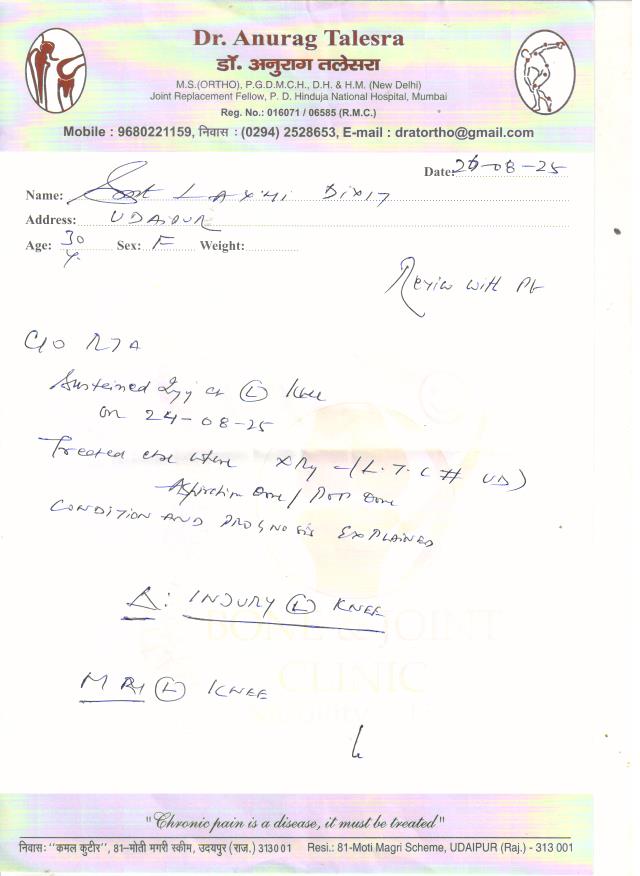 Dr. Anurag Talesra
डॉ. अनुराग तलेसरा
M.S.(ORTHO), P.G.D.M.C.H., D.H. & H.M. (New Delhi)
Joint Replacement Fellow, P. D. Hinduja National Hospital, Mumbai
Reg. No.: 016071 / 06585 (R.M.C.)
Mobile : 9680221159, निवास : (0294) 2528653, E-mail : dratortho@gmail.com
Date: 26-08-25
Name: LAXMI DIXIT
Address: UDAIPUR
Age: 30 Y. Sex: F Weight:
Review with
C/O RTA
Sustained Injy at (L) Knee
on 24-08-25
Treated else where X Ray - (L.T.C # UD)
Aspiration Done / POP Done
CONDITION AND PROGNOSIS EXPLAINED
Δ: INJURY (L) KNEE
BONE & JOINT
CLINIC
MRI (L) KNEE
"Chronic pain is a disease, it must be treated"
निवास: "कमल कुटीर", 81-मोती मगरी स्कीम, उदयपुर (राज.) 313001 Resi.: 81-Moti Magri Scheme, UDAIPUR (Raj.) - 313 001